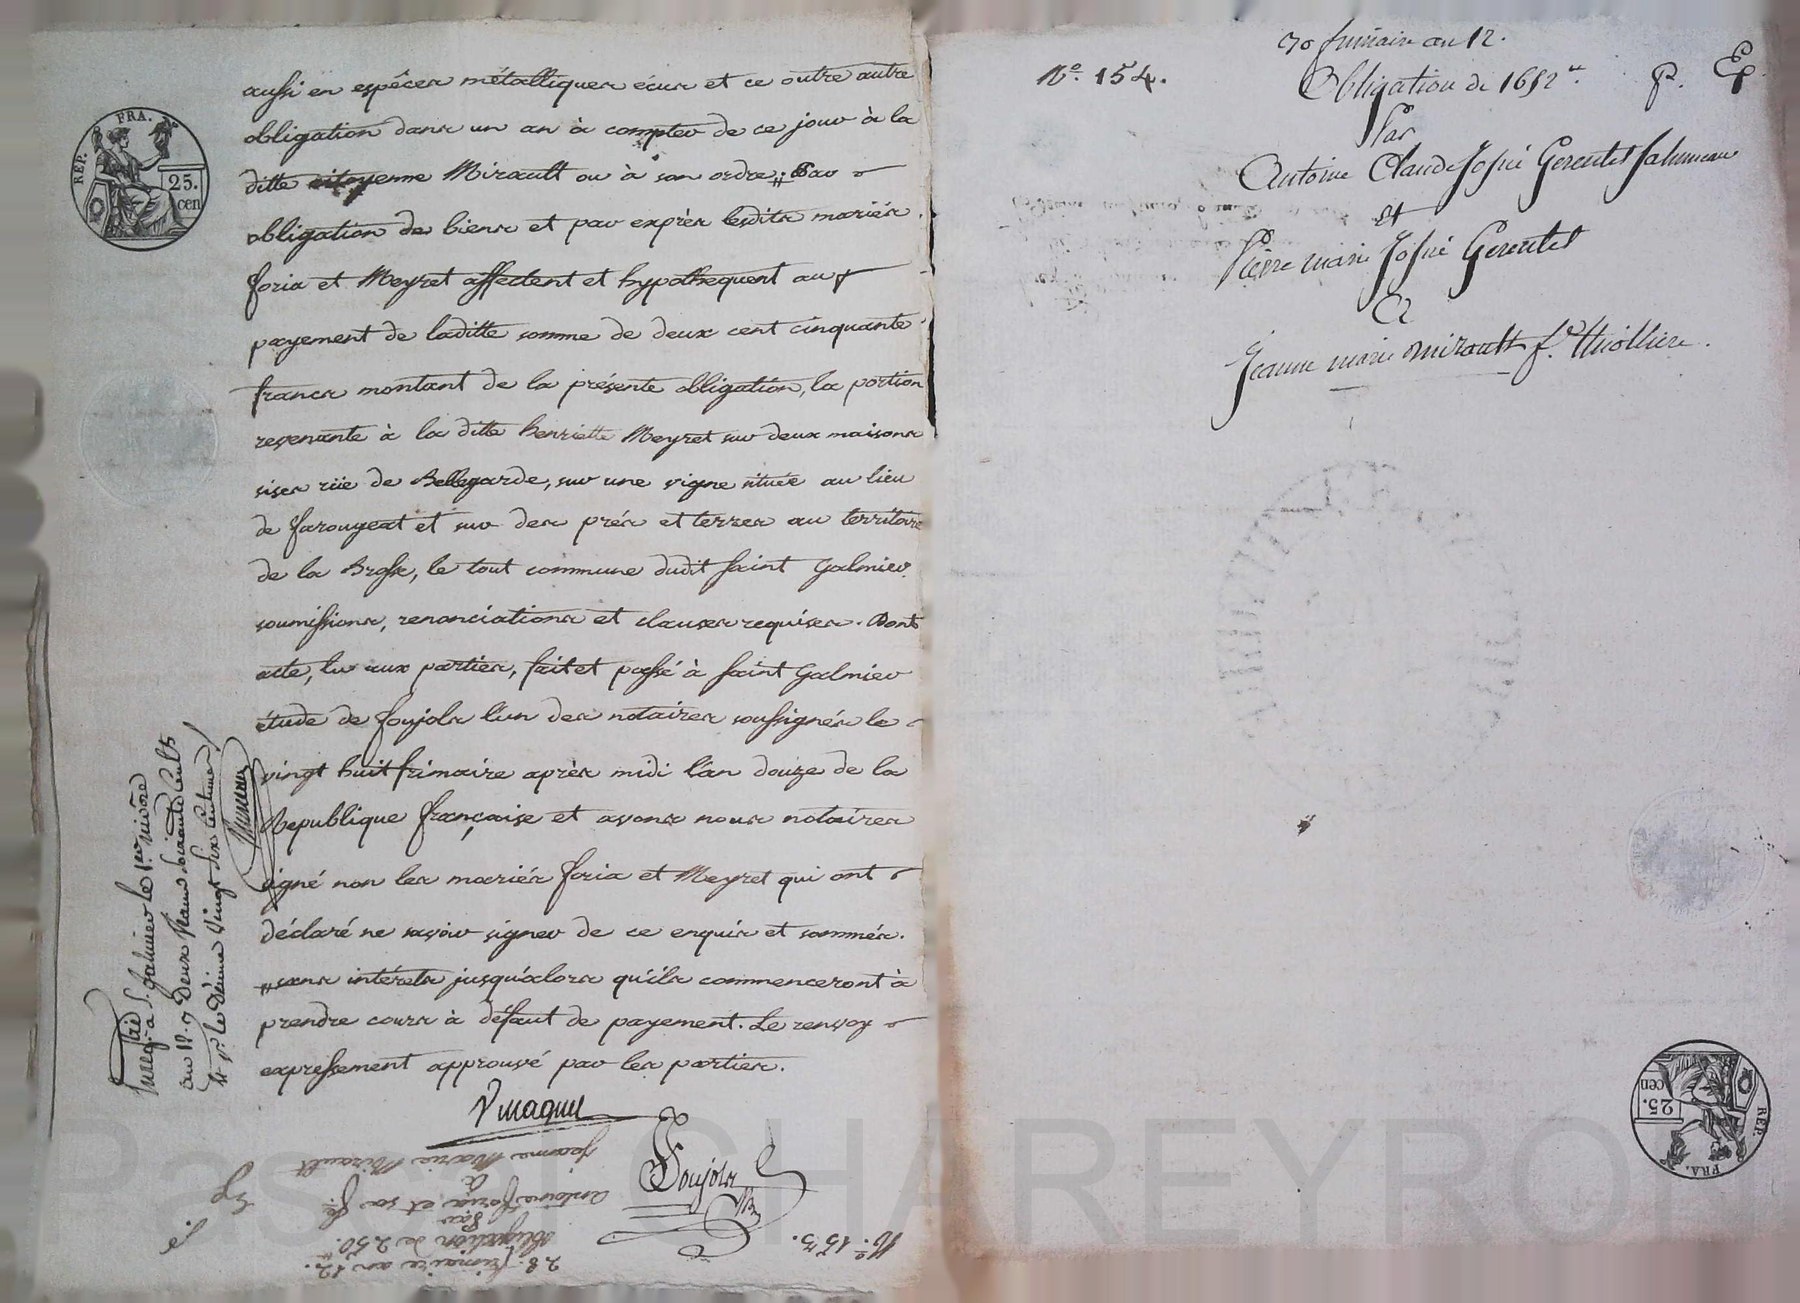 REP. FRA.
25.
cen
aussi en espêces métalliques écus et ce outre autre
obligation dans un an à compter de ce jour à la
ditte citoyenne Mirault ou à son ordre :// Par
obligation de biens et par exprès lesdits mariés
foria et Meyret affectent et hypothequent au
payement de laditte somme de deux cent cinquante
francs montant de la présente obligation, la portion
revenante à la ditte henriette Meyret sur deux maisons
sises rüe de Bellegarde, sur une vigne située au lieu
de farougeat et sur des prés et terres au territoire
de la Brosse, le tout commune dudit Saint Galmier.
soumissions, renonciations et clauses requises. Dont
acte, lu aux parties, fait et passé à Saint Galmier
étude de foujols l'un des notaires soussignés le
vingt huit frimaire après midi l'an douze de la
Republique française et avons nous notaires
signé non les mariés foria et Meyret qui ont
déclaré ne savoir signer de ce enquis et sommés.
// sans intérets jusqu'alors qu'ils commenceront à
prendre cours à défaut de payement. Le renvoy
expressement approuvé par les parties.
à St galmier le 1er nivose
an 12. deux francs soixante
le décime vingt six centimes
Foujols
28. frimaire an 12.
obligation de 250.
Par
antoine foria et sa fe.
A
Jeanne Marie Mirault
No. 153.
30 frimaire an 12.
No. 154.
Obligation de 1652
P. Ep
Par
Antoine Claude Josué Gerentet Saluneau
Et
Pierre marie Josué Gerentet
A
Jeanne marie mirault fe. thiolliere.
REP. FRA.
25.
cen
Pascal CHAREYRON